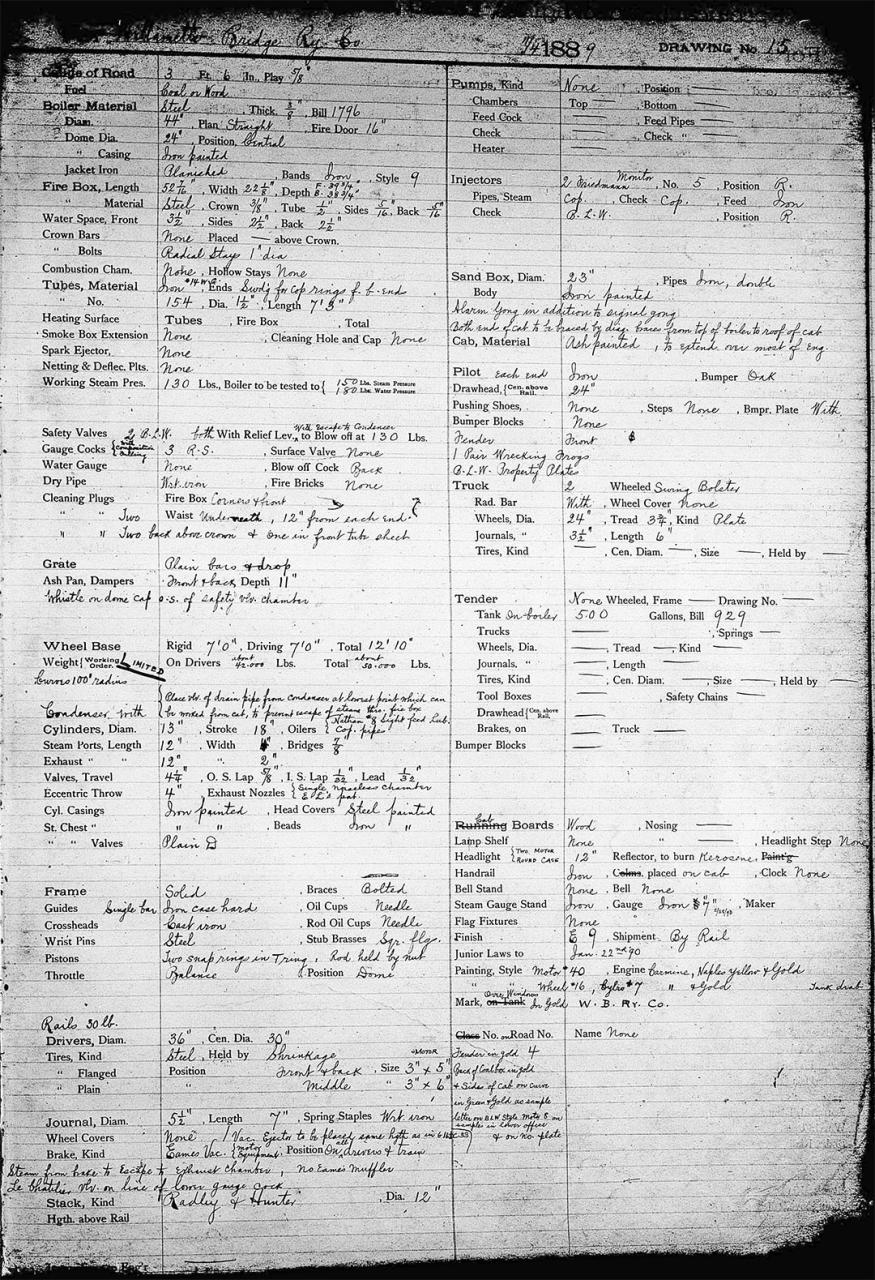 Willamette Bridge Ry. Co.
1889 DRAWING No. 15
Gauge of Road 3 Ft. 6 In. Play 5/8"
Fuel Coal or Wood
Boiler Material Steel, Thick. 3/8", Bill 1796
Diam. 44", Plan Straight, Fire Door 16"
Dome Dia. 24", Position, Central
" Casing Iron painted
Jacket Iron Planished, Bands Iron, Style 9
Fire Box, Length 52 7/16", Width 22 1/8", Depth F. 39 3/4" B. 38 3/4"
" Material Steel, Crown 3/8", Tube 1/2", Sides 5/16", Back 5/16"
Water Space, Front 3 1/2", Sides 2 1/2", Back 2 1/2"
Crown Bars None Placed — above Crown.
" Bolts Radial Stays 1" dia
Combustion Cham. None, Hollow Stays None
Tubes, Material Iron #14 W.G., Ends Swdg for Cop rings f. b. end
" No. 154, Dia. 1 1/2", Length 7' 3"
Heating Surface Tubes, Fire Box, Total
Smoke Box Extension None, Cleaning Hole and Cap None
Spark Ejector, None
Netting & Deflec. Plts. None
Working Steam Pres. 130 Lbs., Boiler to be tested to { 150 Lbs. Steam Pressure 180 Lbs. Water Pressure
With Escape to Condenser
Safety Valves 2 B.L.W. both With Relief Lev., to Blow off at 130 Lbs.
Gauge Cocks 3 R.S., Surface Valve None
Water Gauge None, Blow off Cock Back
Dry Pipe Wrt. iron, Fire Bricks None
Cleaning Plugs Fire Box Corners & front
" " Two Waist Underneath, 12" from each end
" " Two back above crown & One in front tube sheet
Grate Plain bars & drop
Ash Pan, Dampers Front & back Depth 11"
Whistle on dome cap o.s. of safety vlv. chamber
Wheel Base Rigid 7'0", Driving 7'0", Total 12' 10"
Weight { Working Order. LIMITED On Drivers about 42.000 Lbs. Total about 50.000 Lbs.
Curves 100' radius
{ Place vlv. of drain pipe from condenser at lowest point which can
Condenser with be worked from cab, to prevent escape of steam thro. fire box
{ Nathan #8 Sight feed Lub.
Cylinders, Diam. 13", Stroke 18", Oilers { Cop. pipes
Steam Ports, Length 12", Width 1", Bridges 7/8"
Exhaust " 12" " 2"
Valves, Travel 4 1/4", O. S. Lap 5/8", I. S. Lap 1/32", Lead 1/32"
Eccentric Throw 4", Exhaust Nozzles { Single Noiseless Chamber
Cyl. Casings Iron painted, Head Covers Steel painted
St. Chest " " ", Beads Iron "
" " Valves Plain D
Frame Solid, Braces Bolted
Guides Single bar Iron case hard, Oil Cups Needle
Crossheads Cast iron, Rod Oil Cups Needle
Wrist Pins Steel, Stub Brasses Sqr. flgs.
Pistons Two snap rings in T ring, Rod held by nut
Throttle Balance, Position Dome
Rails 30 lb.
Drivers, Diam. 36", Cen. Dia. 30"
Tires, Kind Steel, Held by Shrinkage
" Flanged Position Front & back, Size 3" x 5"
" Plain " Middle " 3" x 6"
Journal, Diam. 5 1/2", Length 7", Spring Staples Wrt iron
Wheel Covers None, 1 Vac. Ejector to be placed same hgth as in
Brake, Kind Eames Vac. { motor Equipment, Position On all drivers & train
Steam from brake to Escape to Exhaust chamber, no Eames Muffler
Le Chatilier vlv. on line of lower gauge cock
Stack, Kind Radley & Hunter, Dia. 12"
Hgth. above Rail
Pumps, Kind None, Position —
Chambers Top — Bottom —
Feed Cock —, Feed Pipes —
Check —, Check " —
Heater —
Injectors 2 Friedmann Monitor, No. 5, Position R.
Pipes, Steam Cop., Check Cop., Feed Iron
Check B.L.W., Position R.
Sand Box, Diam. 23", Pipes Iron, double
Body Iron painted
Alarm Gong in addition to signal gong
Both ends of cab to be braced by diag. braces from top of boiler to roof of cab
Cab, Material Ash painted, to extend over most of Eng.
Pilot Each end Iron, Bumper Oak
Drawhead, { Cen. above Rail. 24"
Pushing Shoes, None, Steps None, Bmpr. Plate With
Bumper Blocks None
Fender Front
1 Pair Wrecking Frogs
B.L.W. Property Plates
Truck 2 Wheeled Swing Bolster
Rad. Bar With, Wheel Cover None
Wheels, Dia. 24", Tread 3 3/4", Kind Plate
Journals, " 3 1/2", Length 6"
Tires, Kind —, Cen. Diam. —, Size —, Held by —
Tender None Wheeled, Frame — Drawing No. —
Tank On boiler 500 Gallons, Bill 929
Trucks —, Springs —
Wheels, Dia. —, Tread —, Kind —
Journals, " —, Length —
Tires, Kind —, Cen. Diam. —, Size —, Held by —
Tool Boxes —, Safety Chains —
Drawhead { Cen. above Rail, —
Brakes, on — Truck —
Bumper Blocks —
Cab
Running Boards Wood, Nosing —
Lamp Shelf None " —, Headlight Step None
Headlight { TWO MOTOR ROUND CASE 12" Reflector, to burn Kerosene, Paint'g
Handrail Iron, Colms. placed on cab, Clock None
Bell Stand None, Bell None
Steam Gauge Stand Iron, Gauge Iron 7", Maker
Flag Fixtures None
Finish E 9, Shipment By Rail
Junior Laws to Jan. 22nd 90
Painting, Style Motor #40, Engine Carmine, Naples Yellow & Gold
" " Wheel #16, Cylrs #7 " & Gold Tank drab
Over Windows
Mark, on Tank In Gold W. B. Ry. Co.
Class No. on Road No. Name None
Fender in gold 4
Back of Coal box in gold
& Sides of Cab on curve
in Green & Gold as sample
letter on B.L.W. Style
samples in lower office
& on no. plate